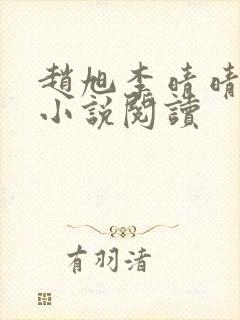 趙旭李晴晴
小說閱讀
有羽渚